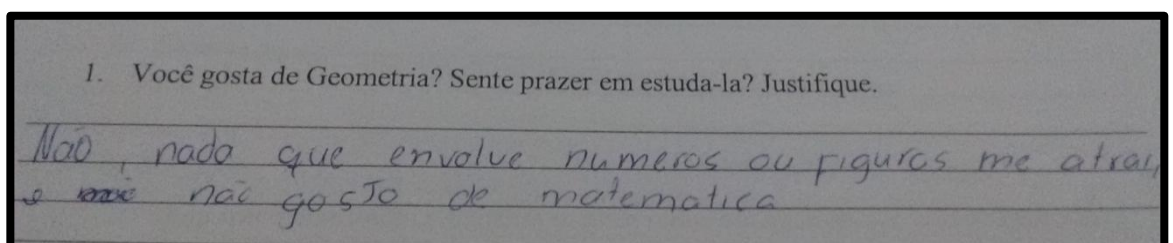 1. Você gosta de Geometria? Sente prazer em estuda-la? Justifique.
Não, nada que envolve numeros ou figuras me atrai,
e não gosto de matematica